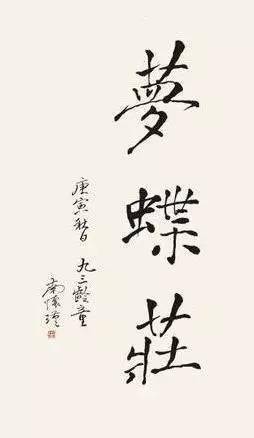 夢蝶莊
庚寅秋日 九三齡童
南懷瑾